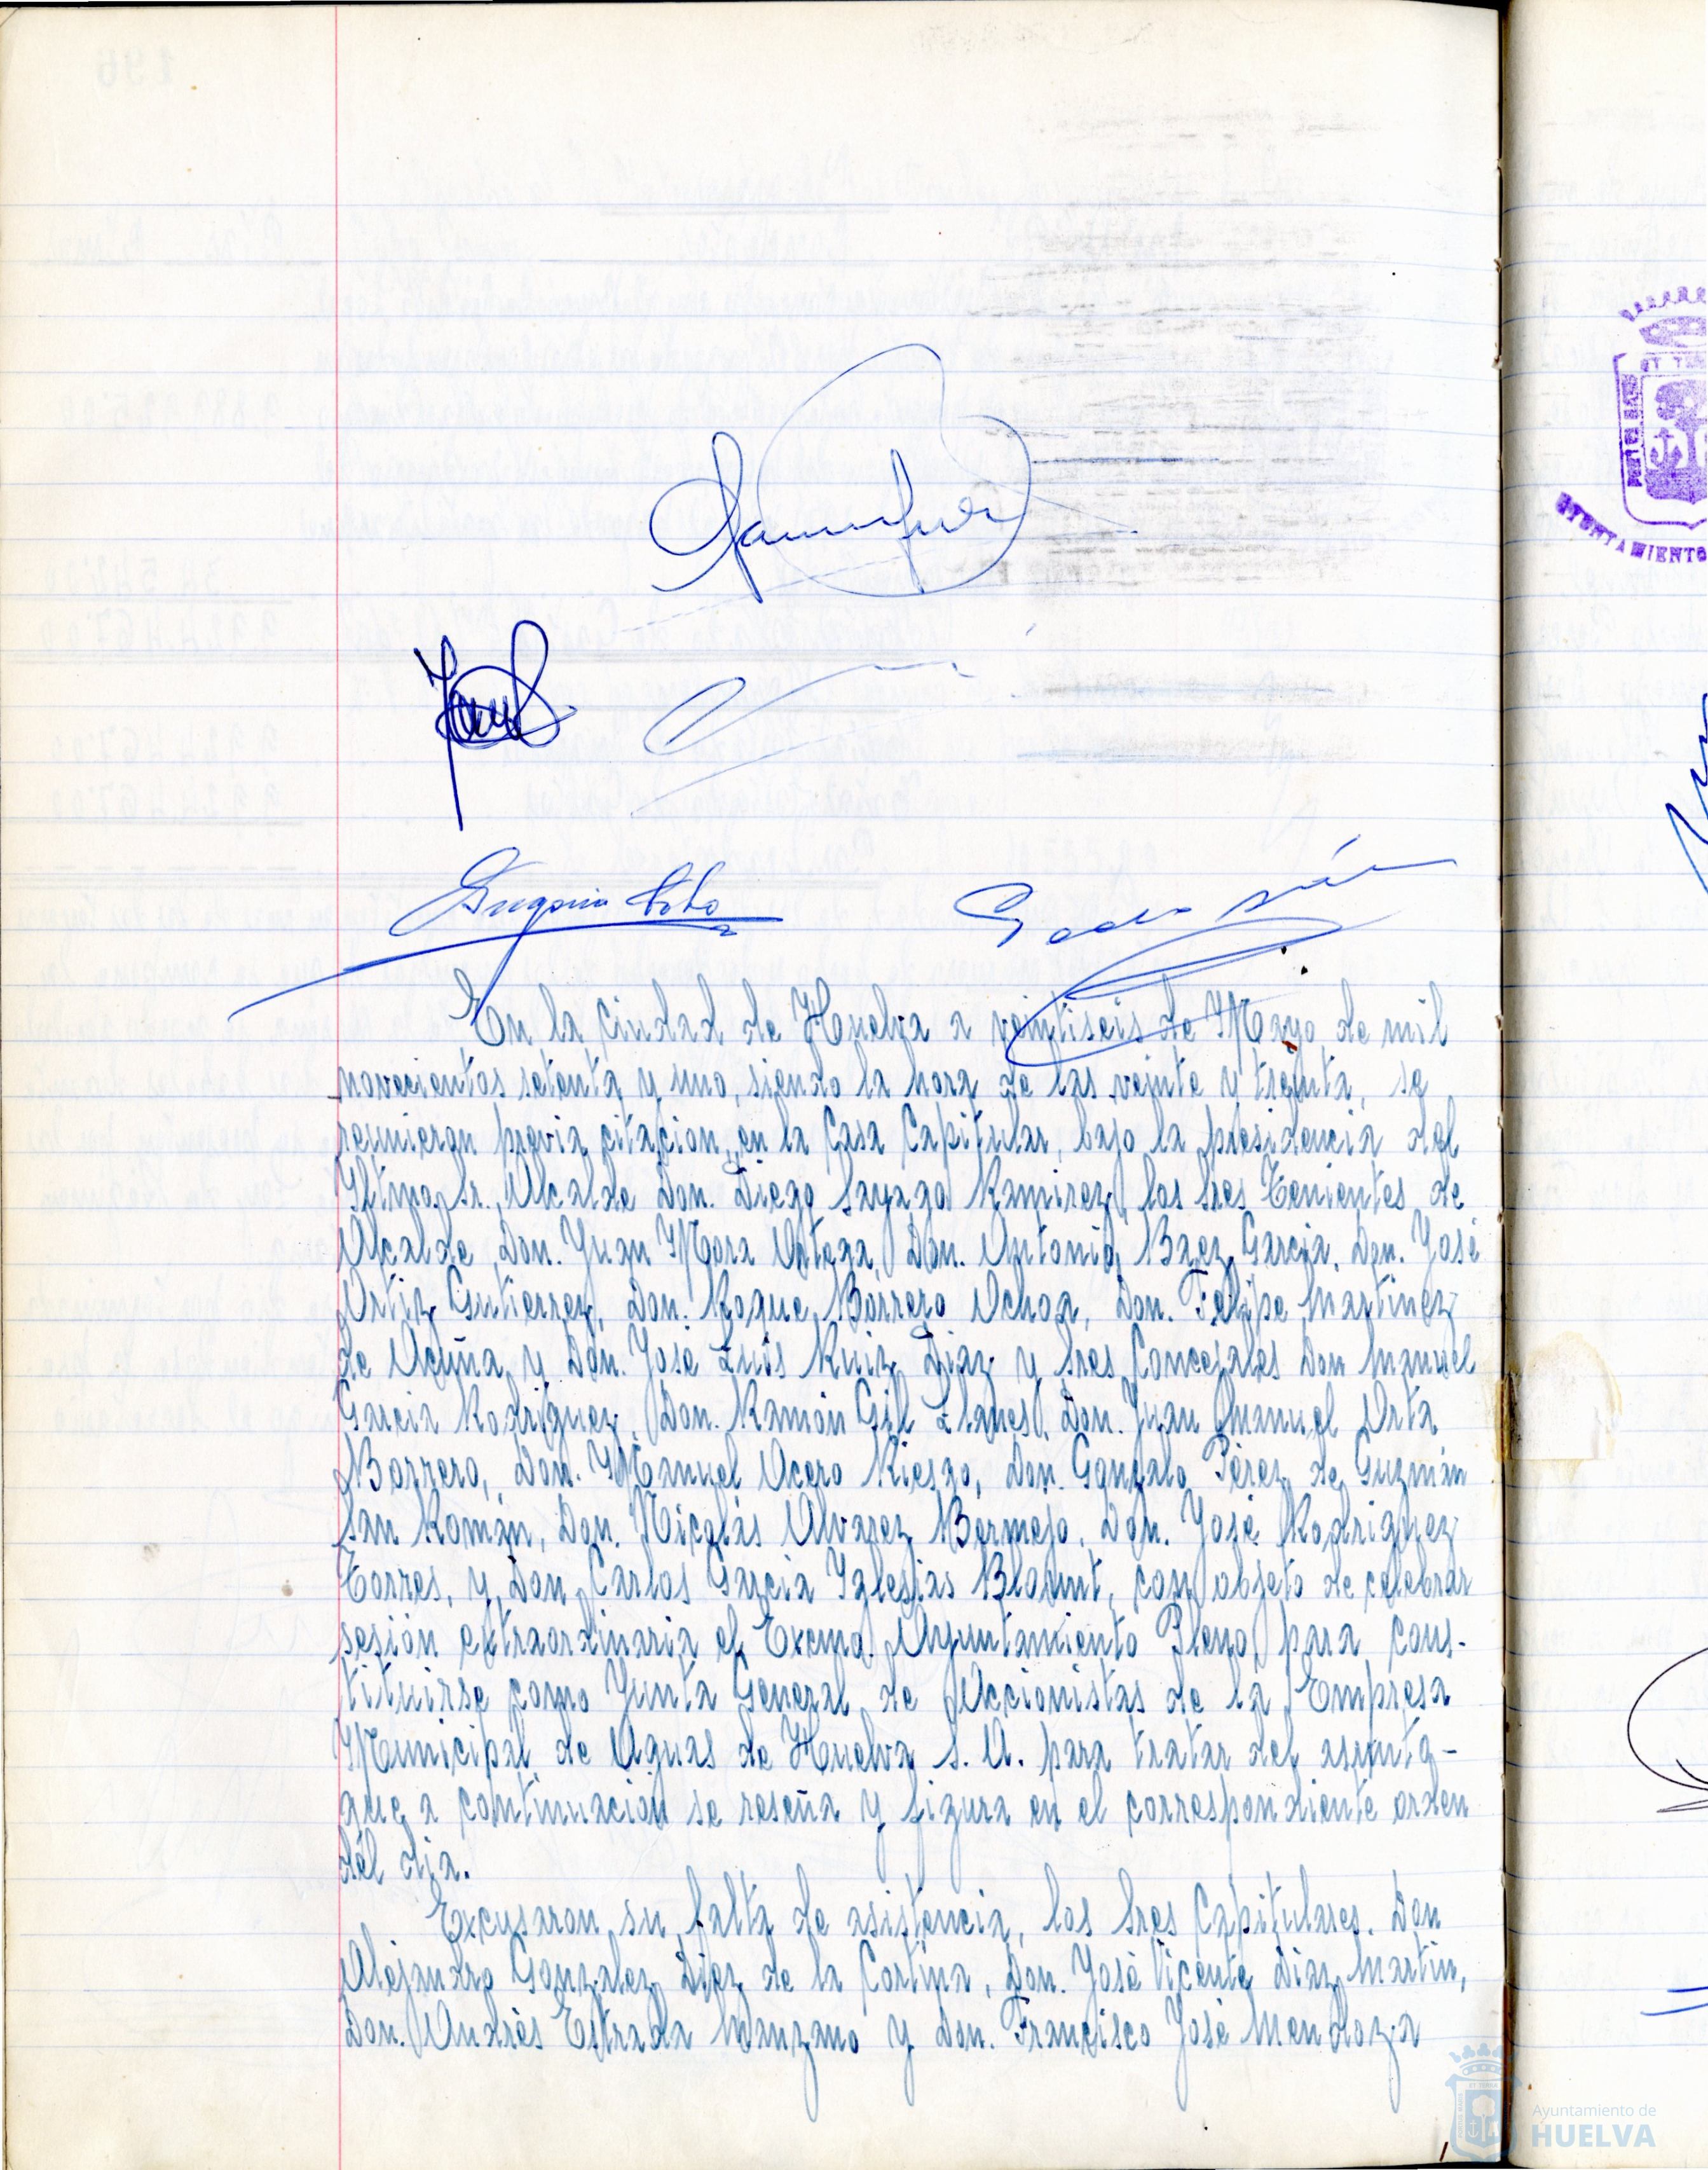 En la ciudad de Huelva a veintiseis de Mayo de mil
novecientos setenta y uno, siendo la hora de las veinte y treinta, se
reunieron previa citación, en la Casa Capitular, bajo la presidencia del
Iltmo. Sr. Alcalde Don. Diego Sayago Ramirez, los Sres Tenientes de
Alcalde Don. Juan Mora Ortega, Don. Antonio Baez Garcia, Don. José
Ortiz Gutierrez, Don. Roque Borrero Ochoa, Don. Felipe Martinez
de Acuña y Don. José Luis Ruiz Diaz y Sres Concejales Don Manuel
Garcia Rodriguez, Don. Ramón Gil Llanes, Don. Juan Manuel Orta
Borrero, Don. Manuel Acero Riesgo, Don. Gonzalo Pérez de Guzmán
San Román, Don. Nicolás Alvarez Bermejo, Don. José Rodriguez
Torres, y Don Carlos Garcia Iglesias Blount, con objeto de celebrar
sesión extraordinaria el Excmo. Ayuntamiento Pleno, para cons-
tituirse como Junta General de Accionistas de la Empresa
Municipal de Aguas de Huelva S. A. para tratar del asunto-
que a continuación se reseña y figura en el correspondiente orden
dél dia.
Excusaron su falta de asistencia, los Sres Capitulares. Don
Alejandro Gonzalez Diez de la Cortina, Don. José Vicente Diaz Martin,
Don. Andrés Estrada Manzano y Don. Francisco José Mendoza
Ayuntamiento de
HUELVA